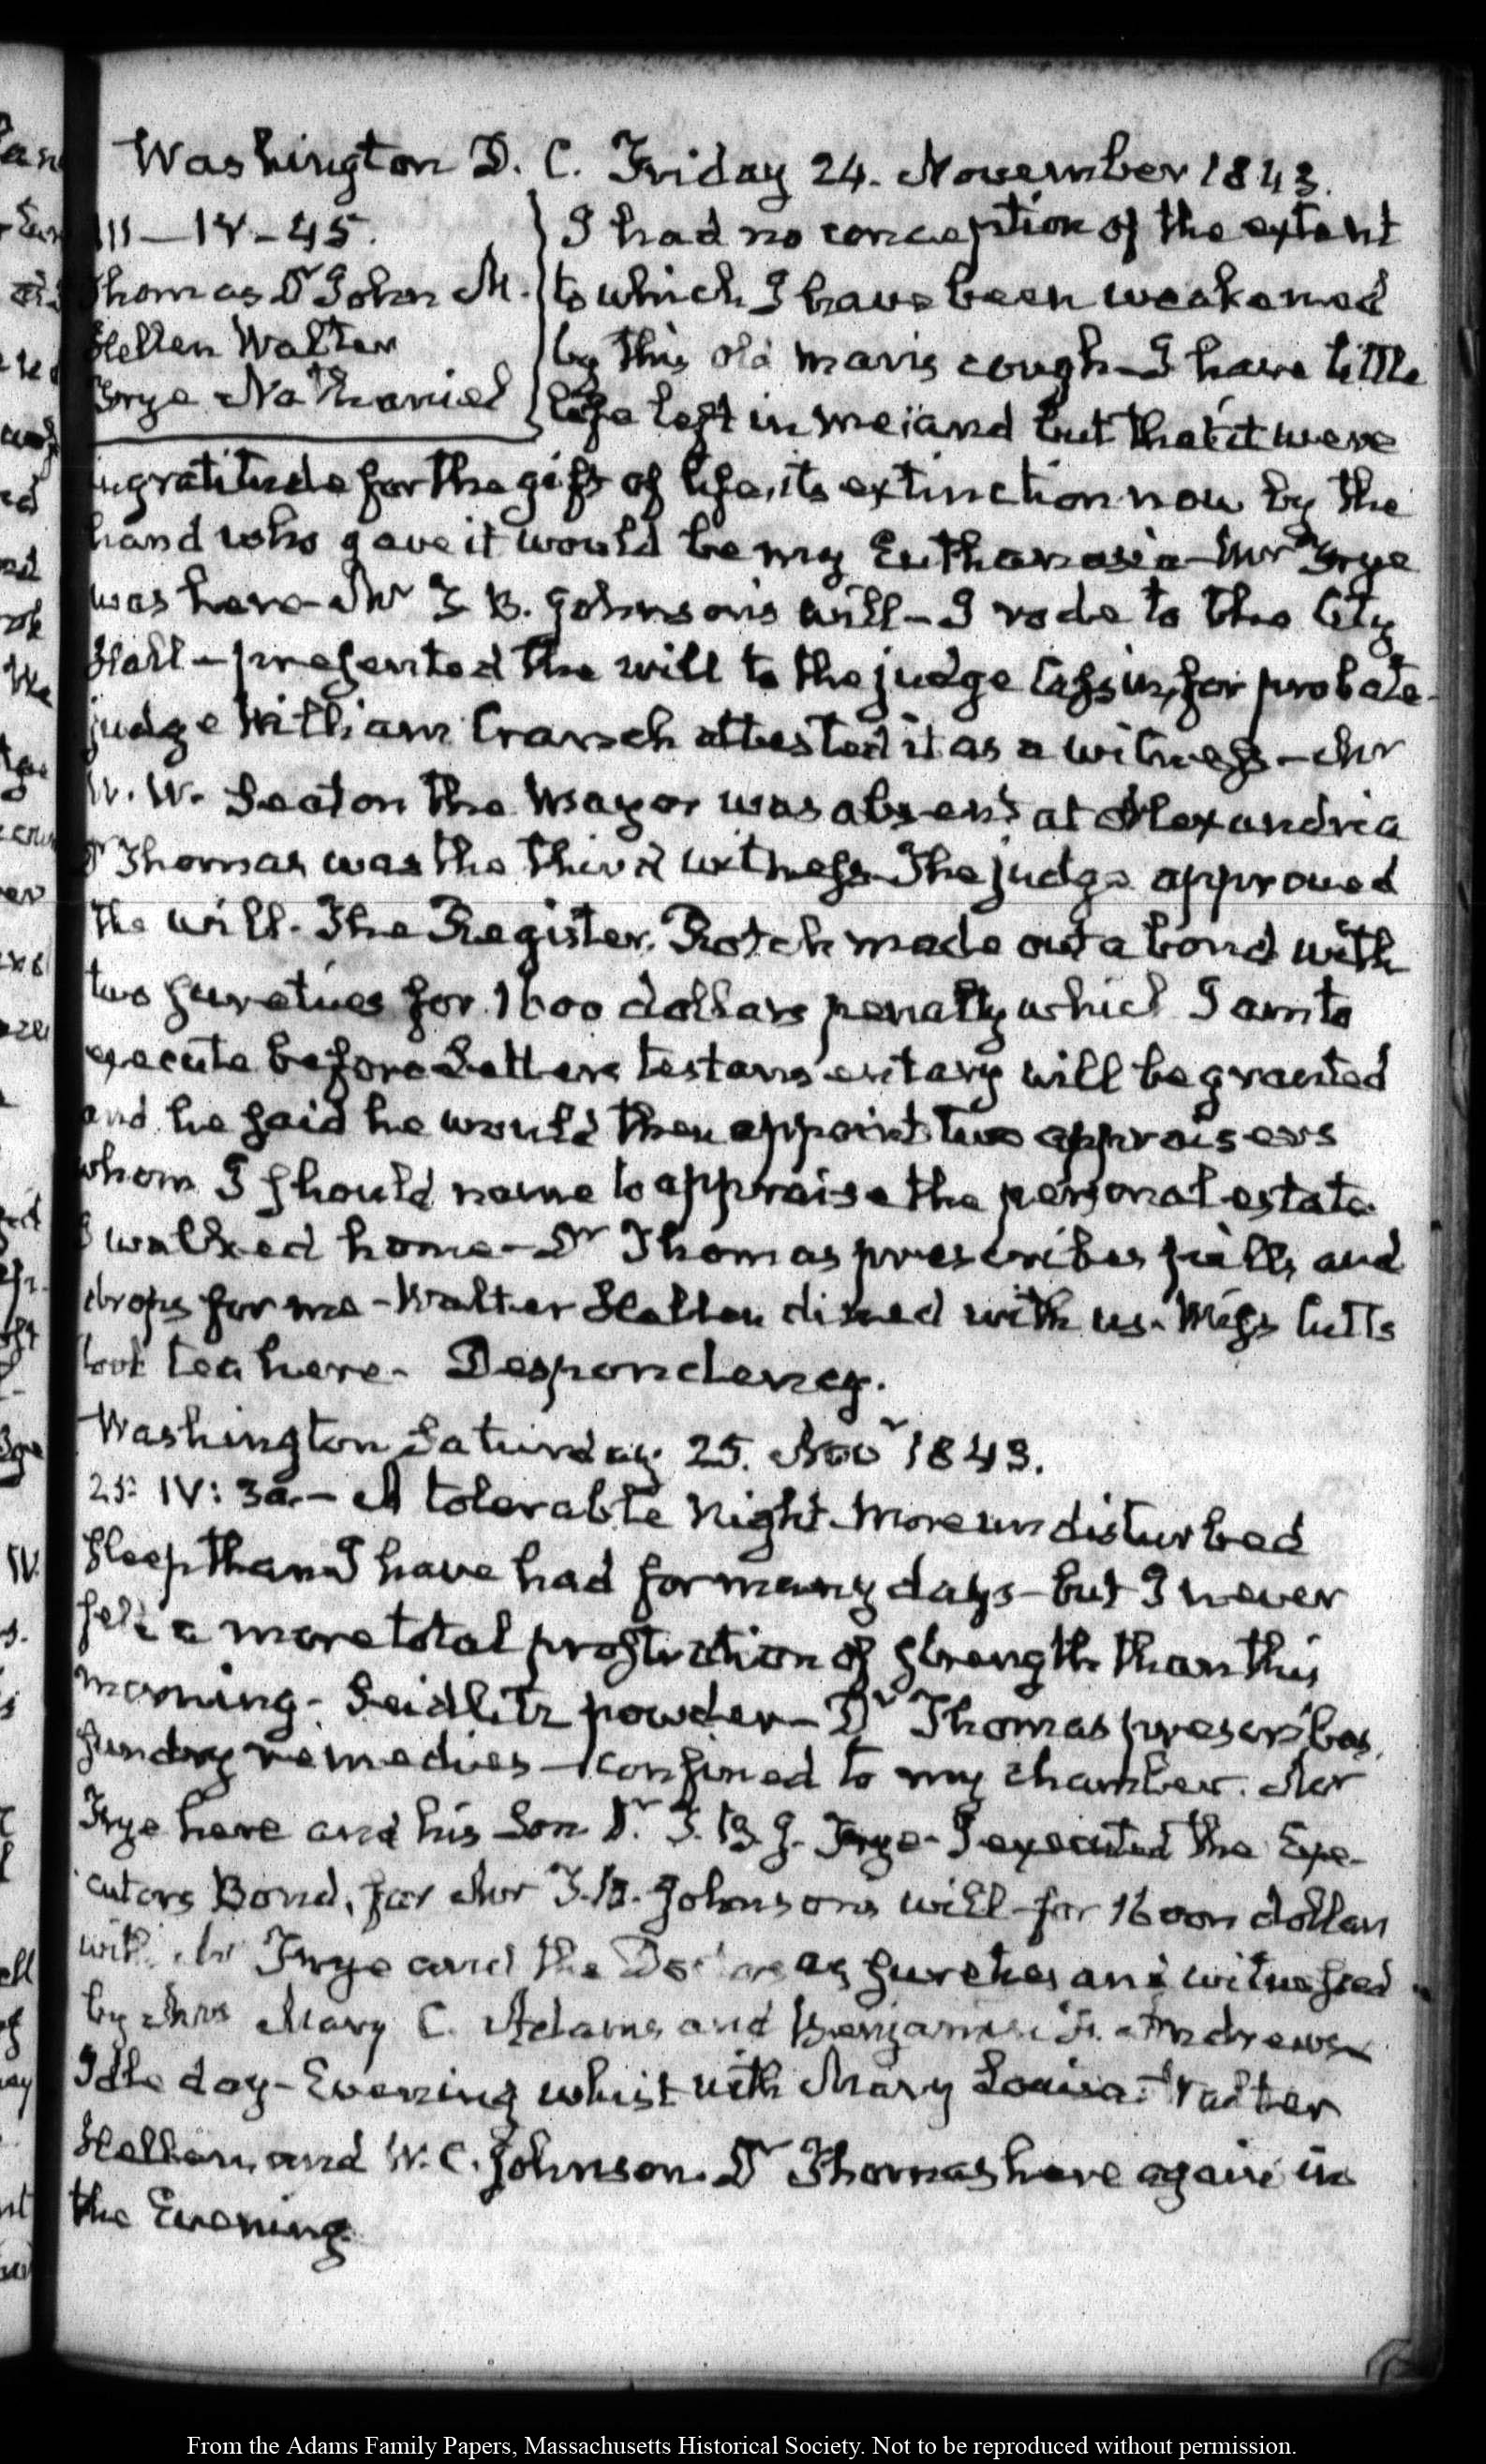 Washington D. C. Friday 24. November 1843.
III — IV - 45.
Thomas Dr John M.
Hellen Walter
Frye Nathaniel
I had no conception of the extent
to which I have been weakened
by this old man's cough — I have little
life left in me; and but that it were
ingratitude for the gift of life, its extinction now by the
hand who gave it would be my Euthanasia — Mr Frye
was here — Mr T. B. Johnson's will — I rode to the City
Hall — presented the will to the judge for probate —
judge William Cranch attested it as a witness — Mr
W. W. Seaton the Mayor was absent at Alexandria
Dr Thomas was the third witness. The judge approved
the will. The Register made out a bond with
two sureties for 1600 dollars penalty which I am to
execute before Letters testamentary will be granted
and he said he would then appoint two appraisers
whom I should name to appraise the personal estate.
I walked home — Dr Thomas prescribes pills and
drops for me — Walter Hellen dined with us. Miss Cutts
took tea here — Despondency.
Washington Saturday 25. Novr 1843.
25. IV: 30. — A tolerable Night. More undisturbed
sleep than I have had for many days — but I never
felt a more total prostration of strength than this
morning — Seidlitz powder — Dr Thomas prescribes
sundry remedies — confined to my chamber. Mr
Frye here and his Son Dr. T. B. J. Frye — I executed the Exe-
cutors Bond, for Mr T. B. Johnson's will for 1600 dollars
with Mr Frye and the Doctor as sureties and witnessed
by Mrs Mary C. Adams and Benjamin Andrews
Idle day — Evening whist with Mary Louisa, Walter
Hellen, and W. C. Johnson. Dr Thomas here again in
the Evening.
From the Adams Family Papers, Massachusetts Historical Society. Not to be reproduced without permission.